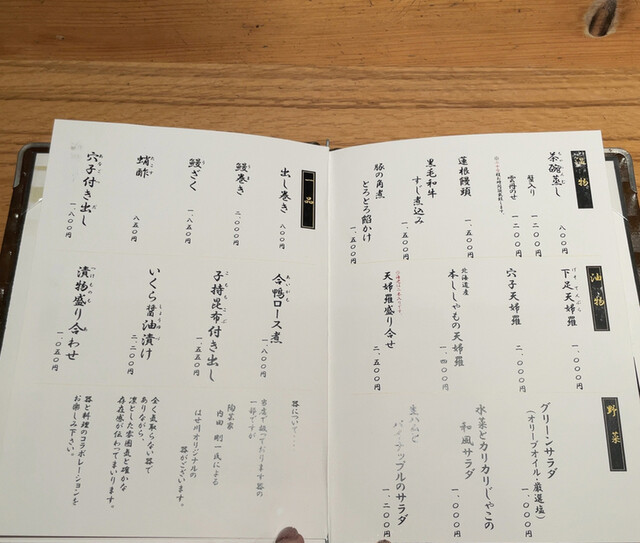 温物
茶碗蒸し
八〇〇円
蟹入り
一.二〇〇円
雲丹のせ
一.二〇〇円
蓮根饅頭
一.五〇〇円
黒毛和牛
すじ煮込み
一.五〇〇円
豚の角煮
とろとろ餡かけ
一.五〇〇円
油物
下足天婦羅
一.〇〇〇円
穴子天婦羅
一.〇〇〇円
北海道産
本ししゃもの天婦羅
一.四〇〇円
天婦羅盛り合せ
二.五〇〇円
野菜
グリーンサラダ
(オリーブオイル・厳選塩)
一.〇〇〇円
水菜とカリカリじゃこの
和風サラダ
一.〇〇〇円
生ハムと
パイナップルのサラダ
一.二〇〇円
一品
出し巻き
八〇〇円
鰻巻き
二.〇〇〇円
鰻ざく
一.八五〇円
蛸酢
八五〇円
穴子付き出し
一.八〇〇円
合鴨ロース煮
一.八〇〇円
子持昆布付き出し
一.五五〇円
いくら醤油漬け
二.二〇〇円
漬物盛り合わせ
一.〇五〇円
器について…
当店で扱っております器の
一部ですが
陶芸家
内田 剛一氏による
はせ川オリジナルの
器がございます。
全く気取らない器で
ありながら、
凛とした雰囲気と確かな
存在感が伝わってまいります。
器と料理のコラボレーションを
お楽しみ下さい。